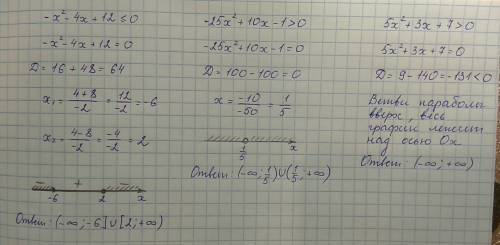 -x² -4x +12 ≤ 0
-x² -4x +12 = 0
D = 16 + 48 = 64
x₁ = (4+8)/(-2) = 12/(-2) = -6
x₂ = (4-8)/(-2) = (-4)/(-2) = 2
- + -
-6 2 x
Ответ: (-∞; -6] ∪ [2; +∞)
-25x² +10x -1 > 0
-25x² +10x -1 = 0
D = 100 - 100 = 0
x = (-10)/(-50) = 1/5
1/5 x
Ответ: (-∞; 1/5) ∪ (1/5; +∞)
5x² + 3x + 7 > 0
5x² + 3x + 7 = 0
D = 9 - 140 = -131 < 0
Ветви параболы
вверх, весь
график лежит
над осью Ox
Ответ: (-∞; +∞)